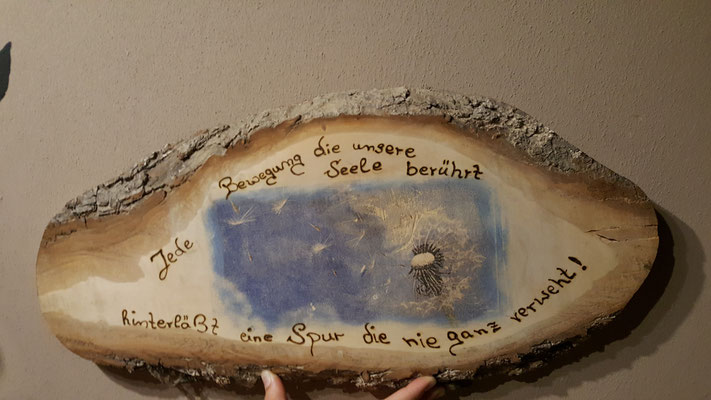 Jede Bewegung die unsere
Seele berührt
hinterläßt eine Spur die nie ganz verweht!